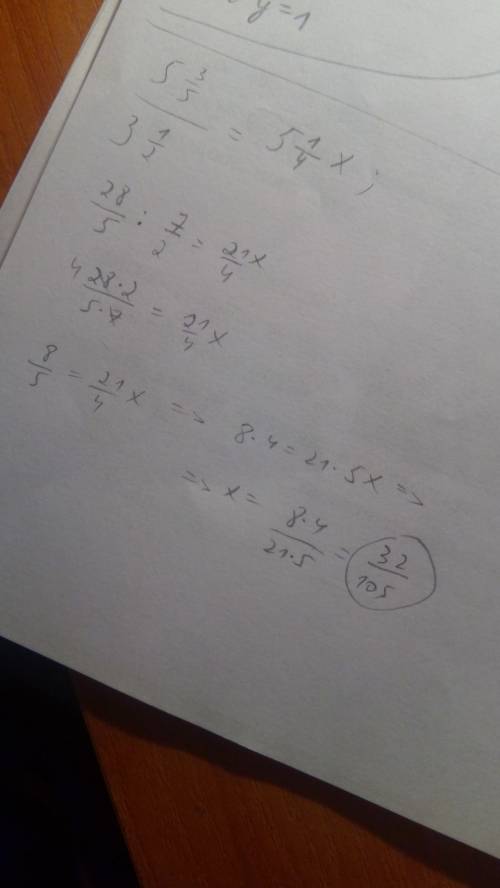 y=1
5 3/5 / 3 1/2 = 5 1/4 x ;
28/5 : 7/2 = 21/4 x
4 28·2/5·7 = 21/4 x
8/5 = 21/4 x => 8·4=21·5x =>
=> x= 8·4/21·5 = 32/105